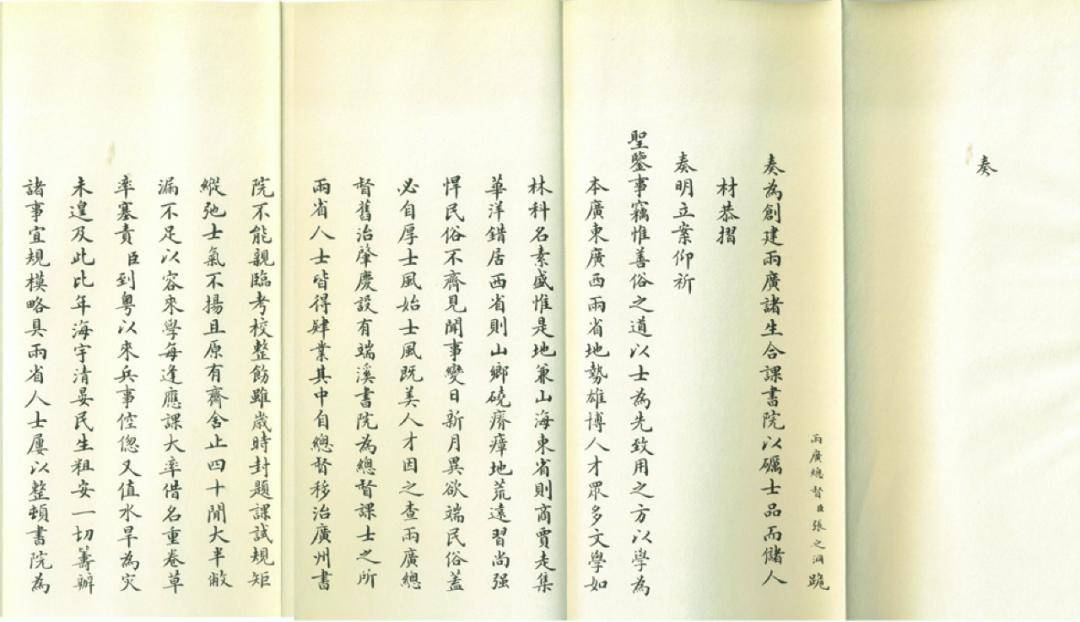 奏
兩廣總督臣張之洞跪
奏為創建兩廣諸生合課書院以礪士品而儲人
材恭摺
奏明立案仰祈
聖鑒事竊惟善俗之道以士為先致用之方以學為
本廣東廣西兩省地勢雄博人才眾多文學如
林科名素盛惟是地兼山海東省則商賈走集
華洋錯居西省則山鄉磽瘠瘴地荒遠習尚强
悍民俗不齊見聞事變日新月異欲端民俗蓋
必自厚士風始士風既美人才因之查兩廣總
督舊治肇慶設有端溪書院為總督課士之所
兩省人士皆得肄業其中自總督移治廣州書
院不能親臨考校整飭雖歲時封題課試規矩
縱弛士氣不揚且原有齋舍止四十間大半敝
漏不足以容來學每逢應課大率借名重卷草
率塞責臣到粵以來兵事倥傯又值水旱為災
未遑及此比年海宇清晏民生粗安一切籌辦
諸事宜規模略具兩省人士屢以整頓書院為